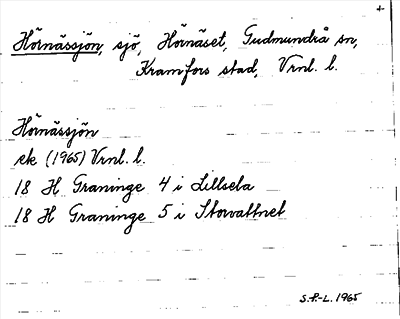 +
Hörnässjön, sjö, Hörnäset, Gudmundrå sn,
Kramfors stad, Vrnl. l.
Hörnässjön
ek (1965) Vrnl. l.
18 H Graninge 4 i Lillsela
18 H Graninge 5 i Storvattnet
S.P.-L. 1965